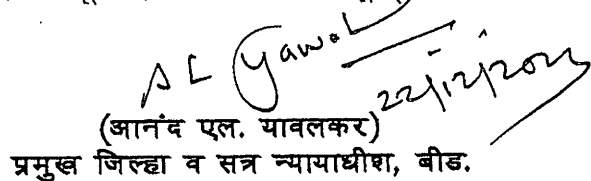 A L Yawal
22/12/2023
(आनंद एल. यावलकर)
प्रमुख जिल्हा व सत्र न्यायाधीश, बीड.